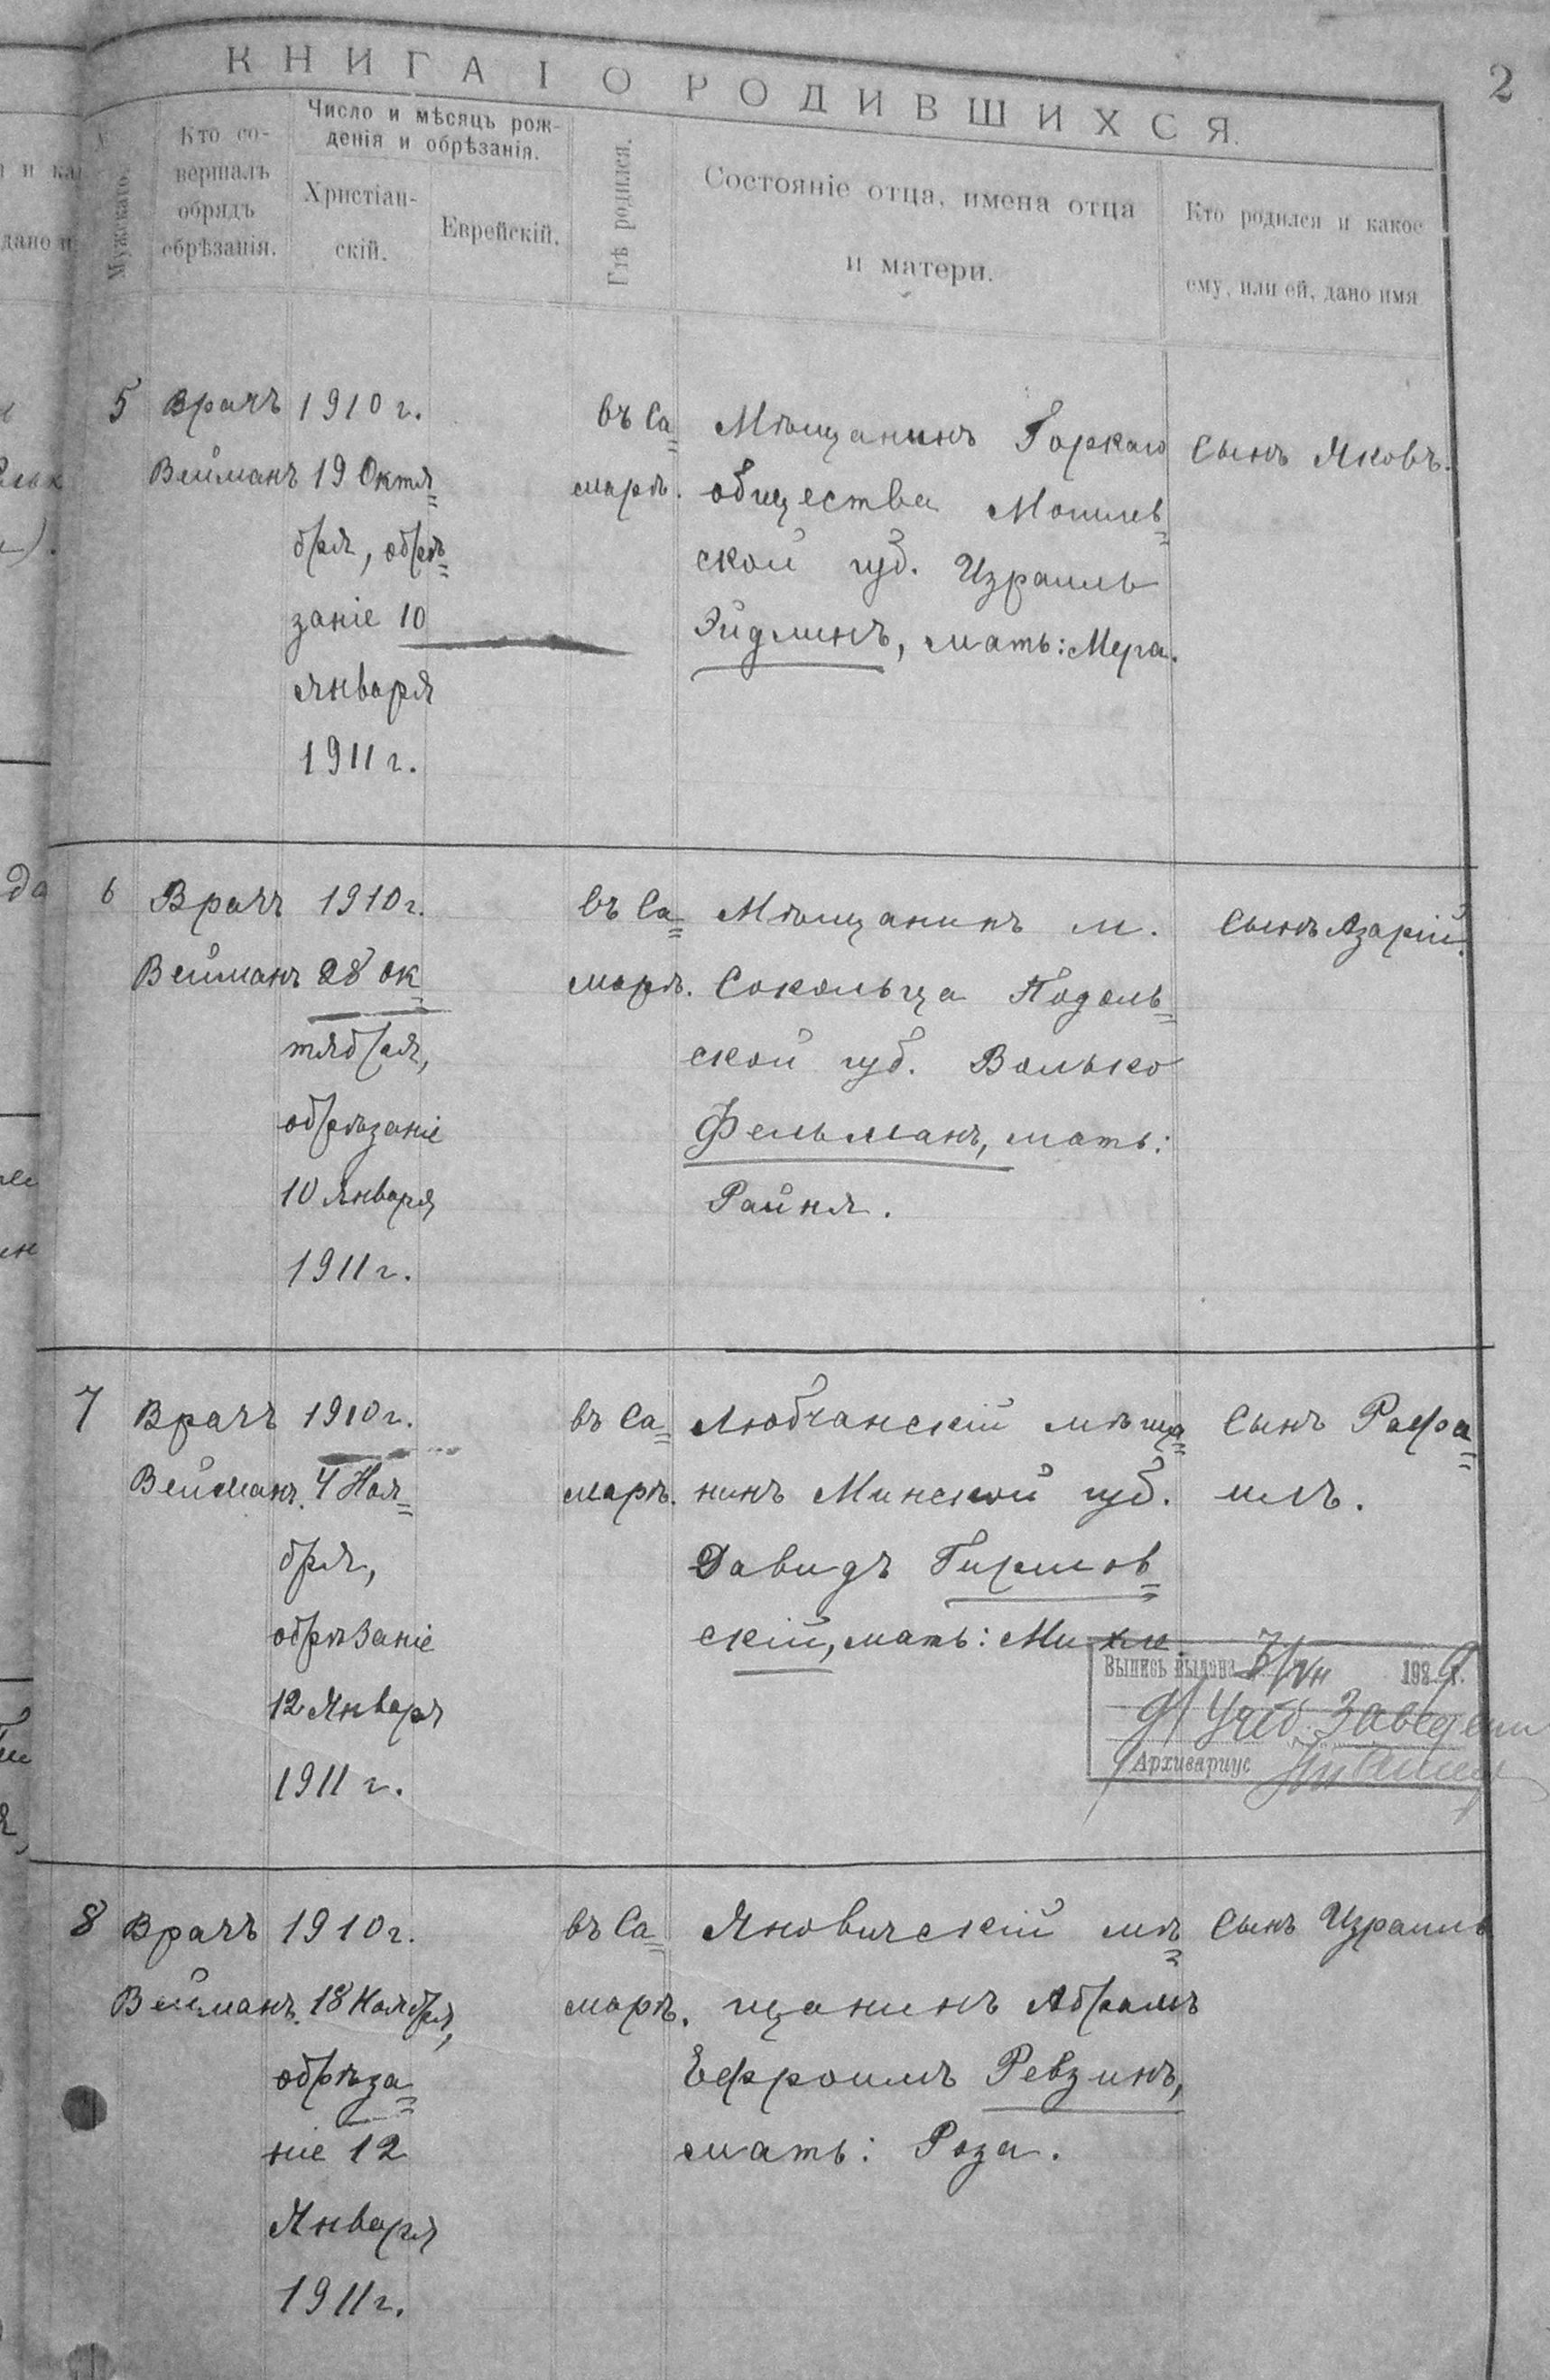 КНИГА I О РОДИВШИХСЯ.
2
Мужскаго.
Кто со-
вершалъ
обрядъ
обрѣзанія.
Число и мѣсяцъ рож-
денія и обрѣзанія.
Христіан-
скій.
Еврейскій.
Гдѣ родился.
Состояніе отца, имена отца
и матери.
Кто родился и какое
ему, или ей, дано имя
5
Врачъ
Вейманъ
1910 г.
19 Октя=
бря, обрѣ=
заніе 10
января
1911 г.
въ Са=
марѣ.
Мѣщанинъ Горкаго
общества Могилев=
ской губ. Израиль
Эйдлинъ, мать: Мера.
Сынъ Яковъ.
6
Врачъ
Вейманъ
1910 г.
28 ок=
тября,
обрѣзаніе
10 Января
1911 г.
въ Са=
марѣ.
Мѣщанинъ м.
Сокольца Подоль=
ской губ. Волько
Фельманъ, мать:
Райня.
Сынъ Азарій.
7
Врачъ
Вейманъ.
1910 г.
4 Ноя=
бря,
обрѣзаніе
12 Январ
1911 г.
въ Са=
марѣ.
Любчанскій мѣща=
нинъ Минской губ.
Давидъ Гиршов=
скій, мать:
Сынъ Рафа=
илъ.
Выпись выдана
198
Архивариус
8
Врачъ
Вейманъ.
1910 г.
18 Ноября,
обрѣза=
ніе 12
Января
1911 г.
въ Са=
марѣ.
Яновичскій мѣ=
щанинъ Абрамъ
Ефроимъ Ревзинъ,
мать: Роза.
Сынъ Израиль